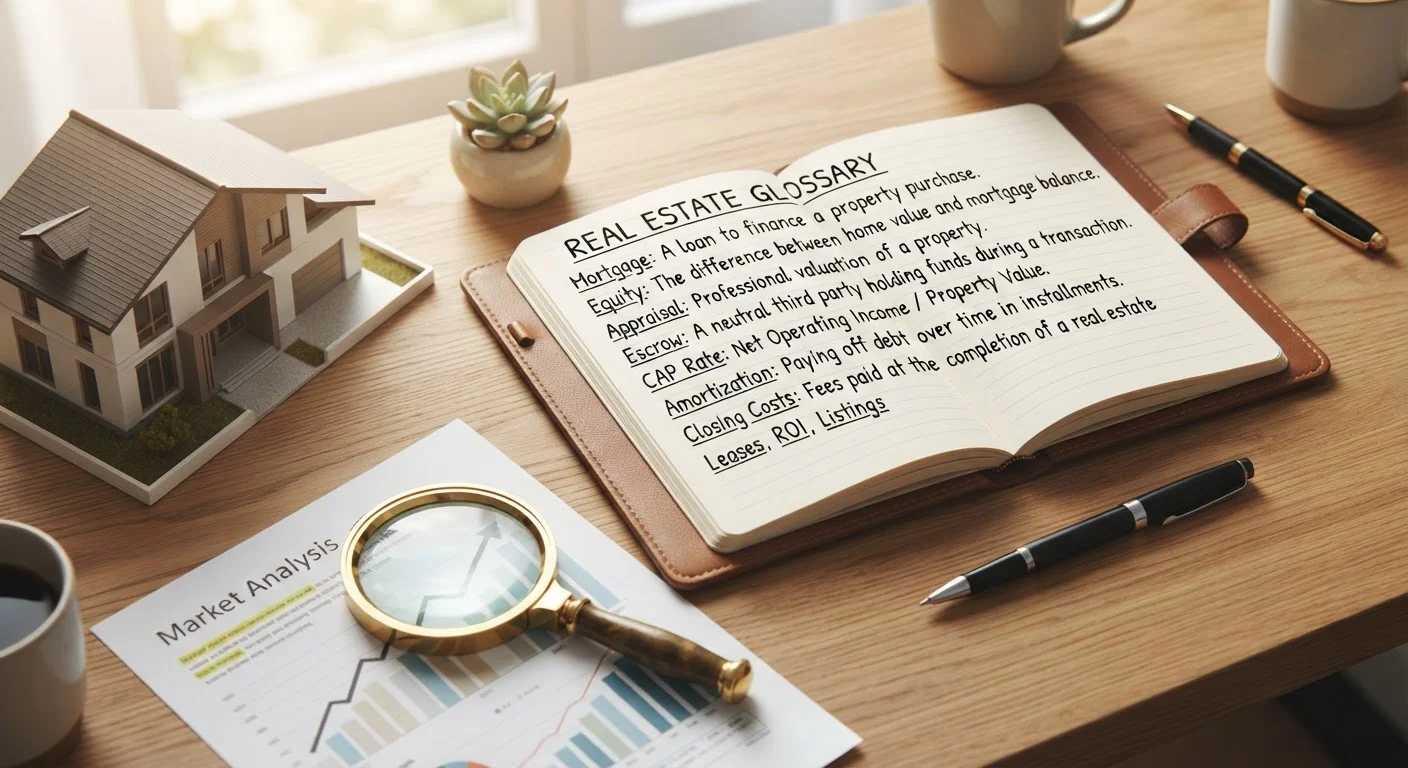 REAL ESTATE GLOSSARY
Mortgage: A loan to finance a property purchase.
Equity: The difference between home value and mortgage balance.
Appraisal: Professional valuation of a property.
Escrow: A neutral third party holding funds during a transaction.
CAP Rate: Net Operating Income / Property Value.
Amortization: Paying off debt over time in installments.
Closing Costs: Fees paid at the completion of a real estate
Leases, ROI, Listings
Market Analysis